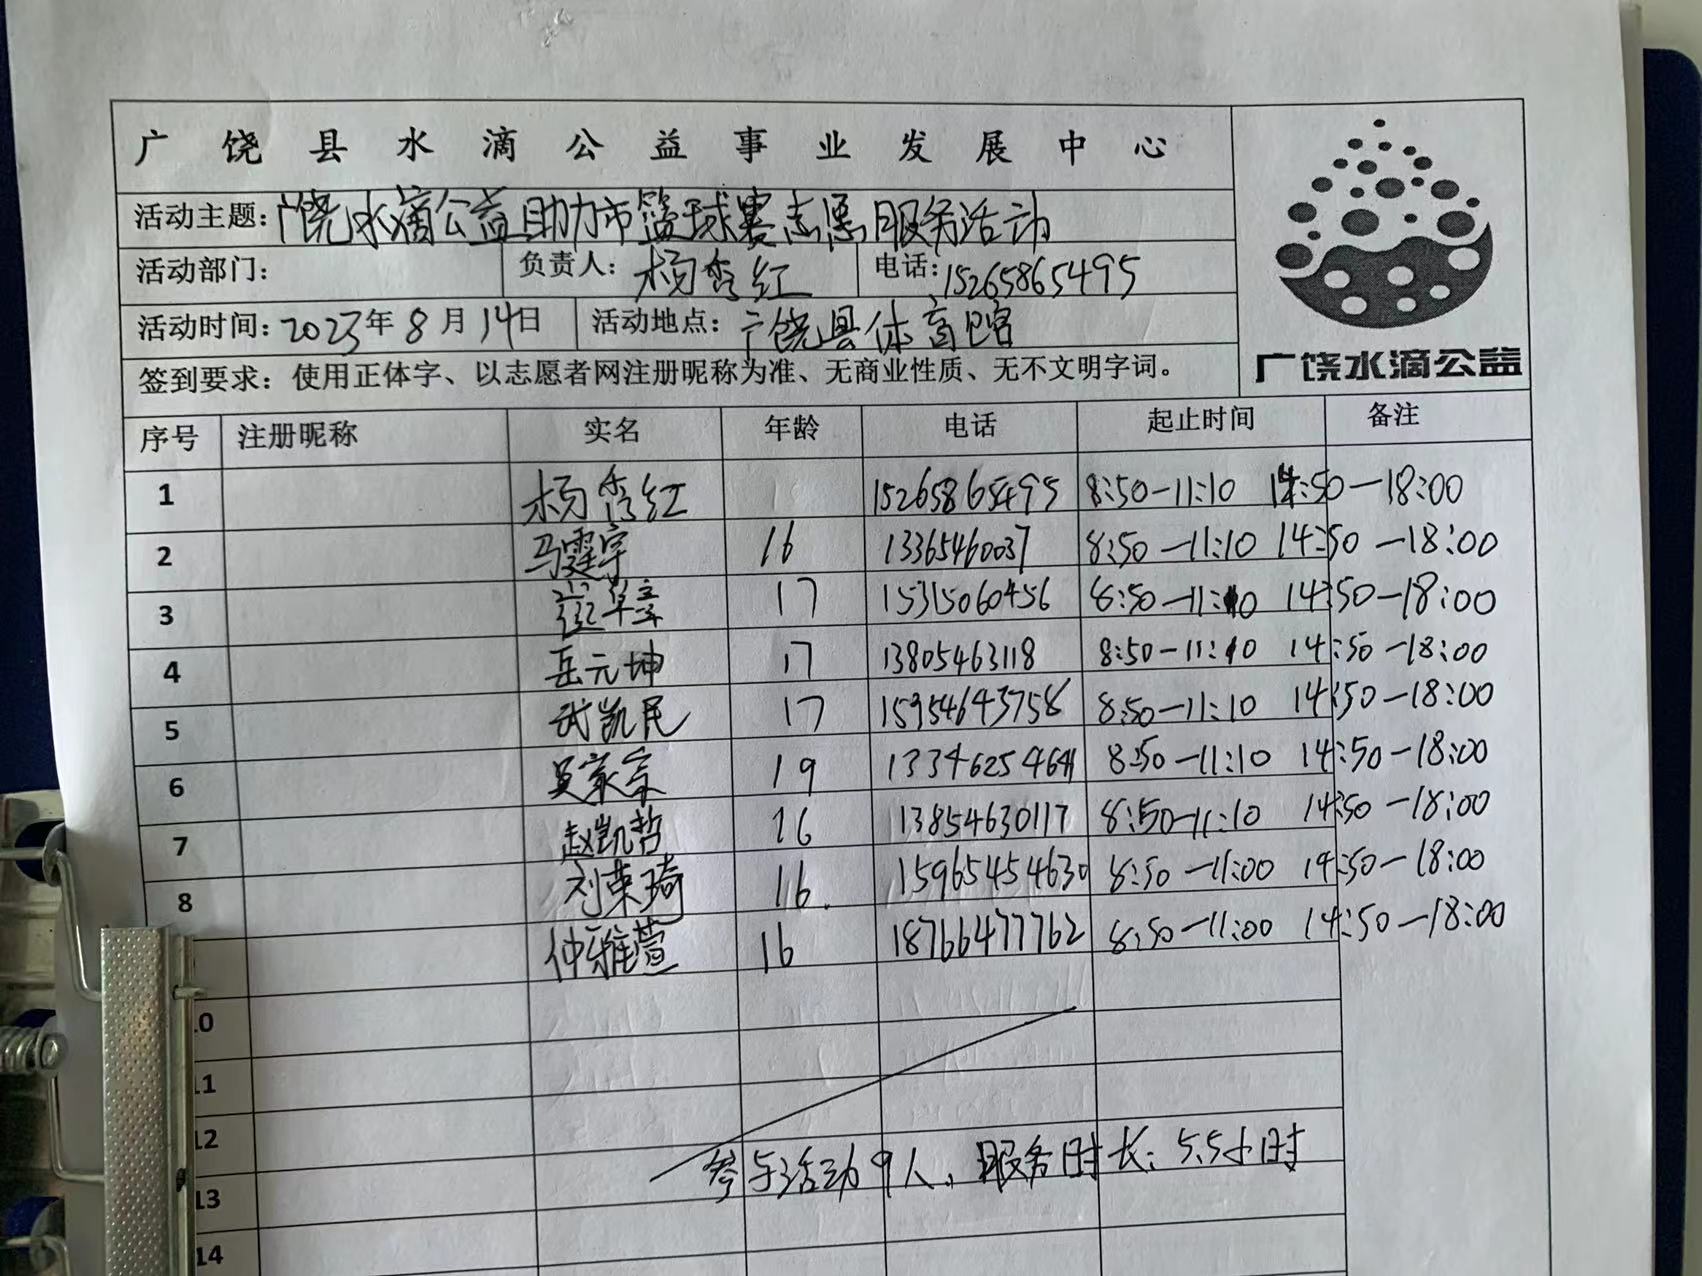 广饶县水滴公益事业发展中心
活动主题：广饶水滴公益助力市篮球赛志愿服务活动
活动部门： 负责人：杨秀红 电话：15265865495
活动时间：2023年8月14日 活动地点：广饶县体育馆
签到要求：使用正体字、以志愿者网注册昵称为准、无商业性质、无不文明字词。
广饶水滴公益
序号 注册昵称 实名 年龄 电话 起止时间 备注
1 杨秀红 15265865495 8:50-11:10 14:50-18:00
2 马霆宇 16 13365460037 8:50-11:10 14:50-18:00
3 17 15315060456 8:50-11:10 14:50-18:00
4 岳元坤 17 13805463118 8:50-11:10 14:50-18:00
5 武凯民 17 15954643758 8:50-11:10 14:50-18:00
6 吴家宗 19 8:50-11:10 14:50-18:00
7 赵凯哲 16 13854630117 8:50-11:10 14:50-18:00
8 刘荣琦 16 15965454630 8:50-11:00 14:50-18:00
仲雅萱 16 18766477762 8:50-11:00 14:50-18:00
10
11
12
参与活动9人，服务时长：5.5小时
13
14